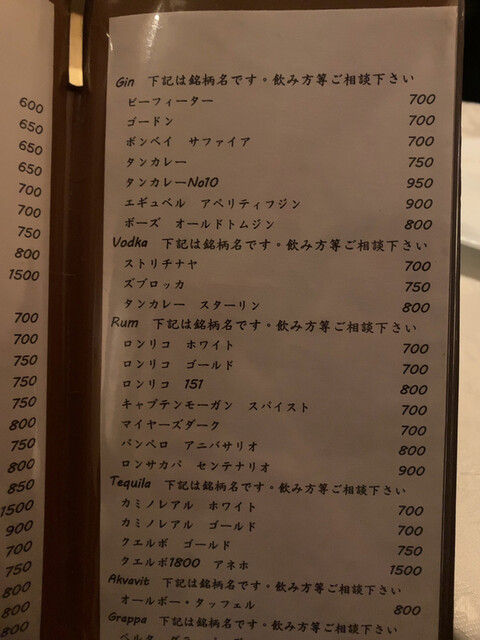 600
650
650
650
700
700
750
800
1500
700
700
750
750
750
800
750
800
850
1500
900
700
750
800
800
800
Gin 下記は銘柄名です。飲み方等ご相談下さい
ビーフィーター 700
ゴードン 700
ボンベイ サファイア 700
タンカレー 750
タンカレーNo10 950
エギュベル アペリティフジン 900
ボーズ オールドトムジン 800
Vodka 下記は銘柄名です。飲み方等ご相談下さい
ストリチナヤ 700
ズブロッカ 750
タンカレー スターリン 800
Rum 下記は銘柄名です。飲み方等ご相談下さい
ロンリコ ホワイト 700
ロンリコ ゴールド 700
ロンリコ 151 800
キャプテンモーガン スパイスト 700
マイヤーズダーク 700
パンペロ アニバサリオ 800
ロンサカパ センテナリオ 900
Tequila 下記は銘柄名です。飲み方等ご相談下さい
カミノレアル ホワイト 700
カミノレアル ゴールド 700
クエルボ ゴールド 750
クエルボ1800 アネホ 1500
Akvavit 下記は銘柄名です。飲み方等ご相談下さい
オールボー・タッフェル 800
Grappa 下記は銘柄名です。飲み方等ご相談下さい